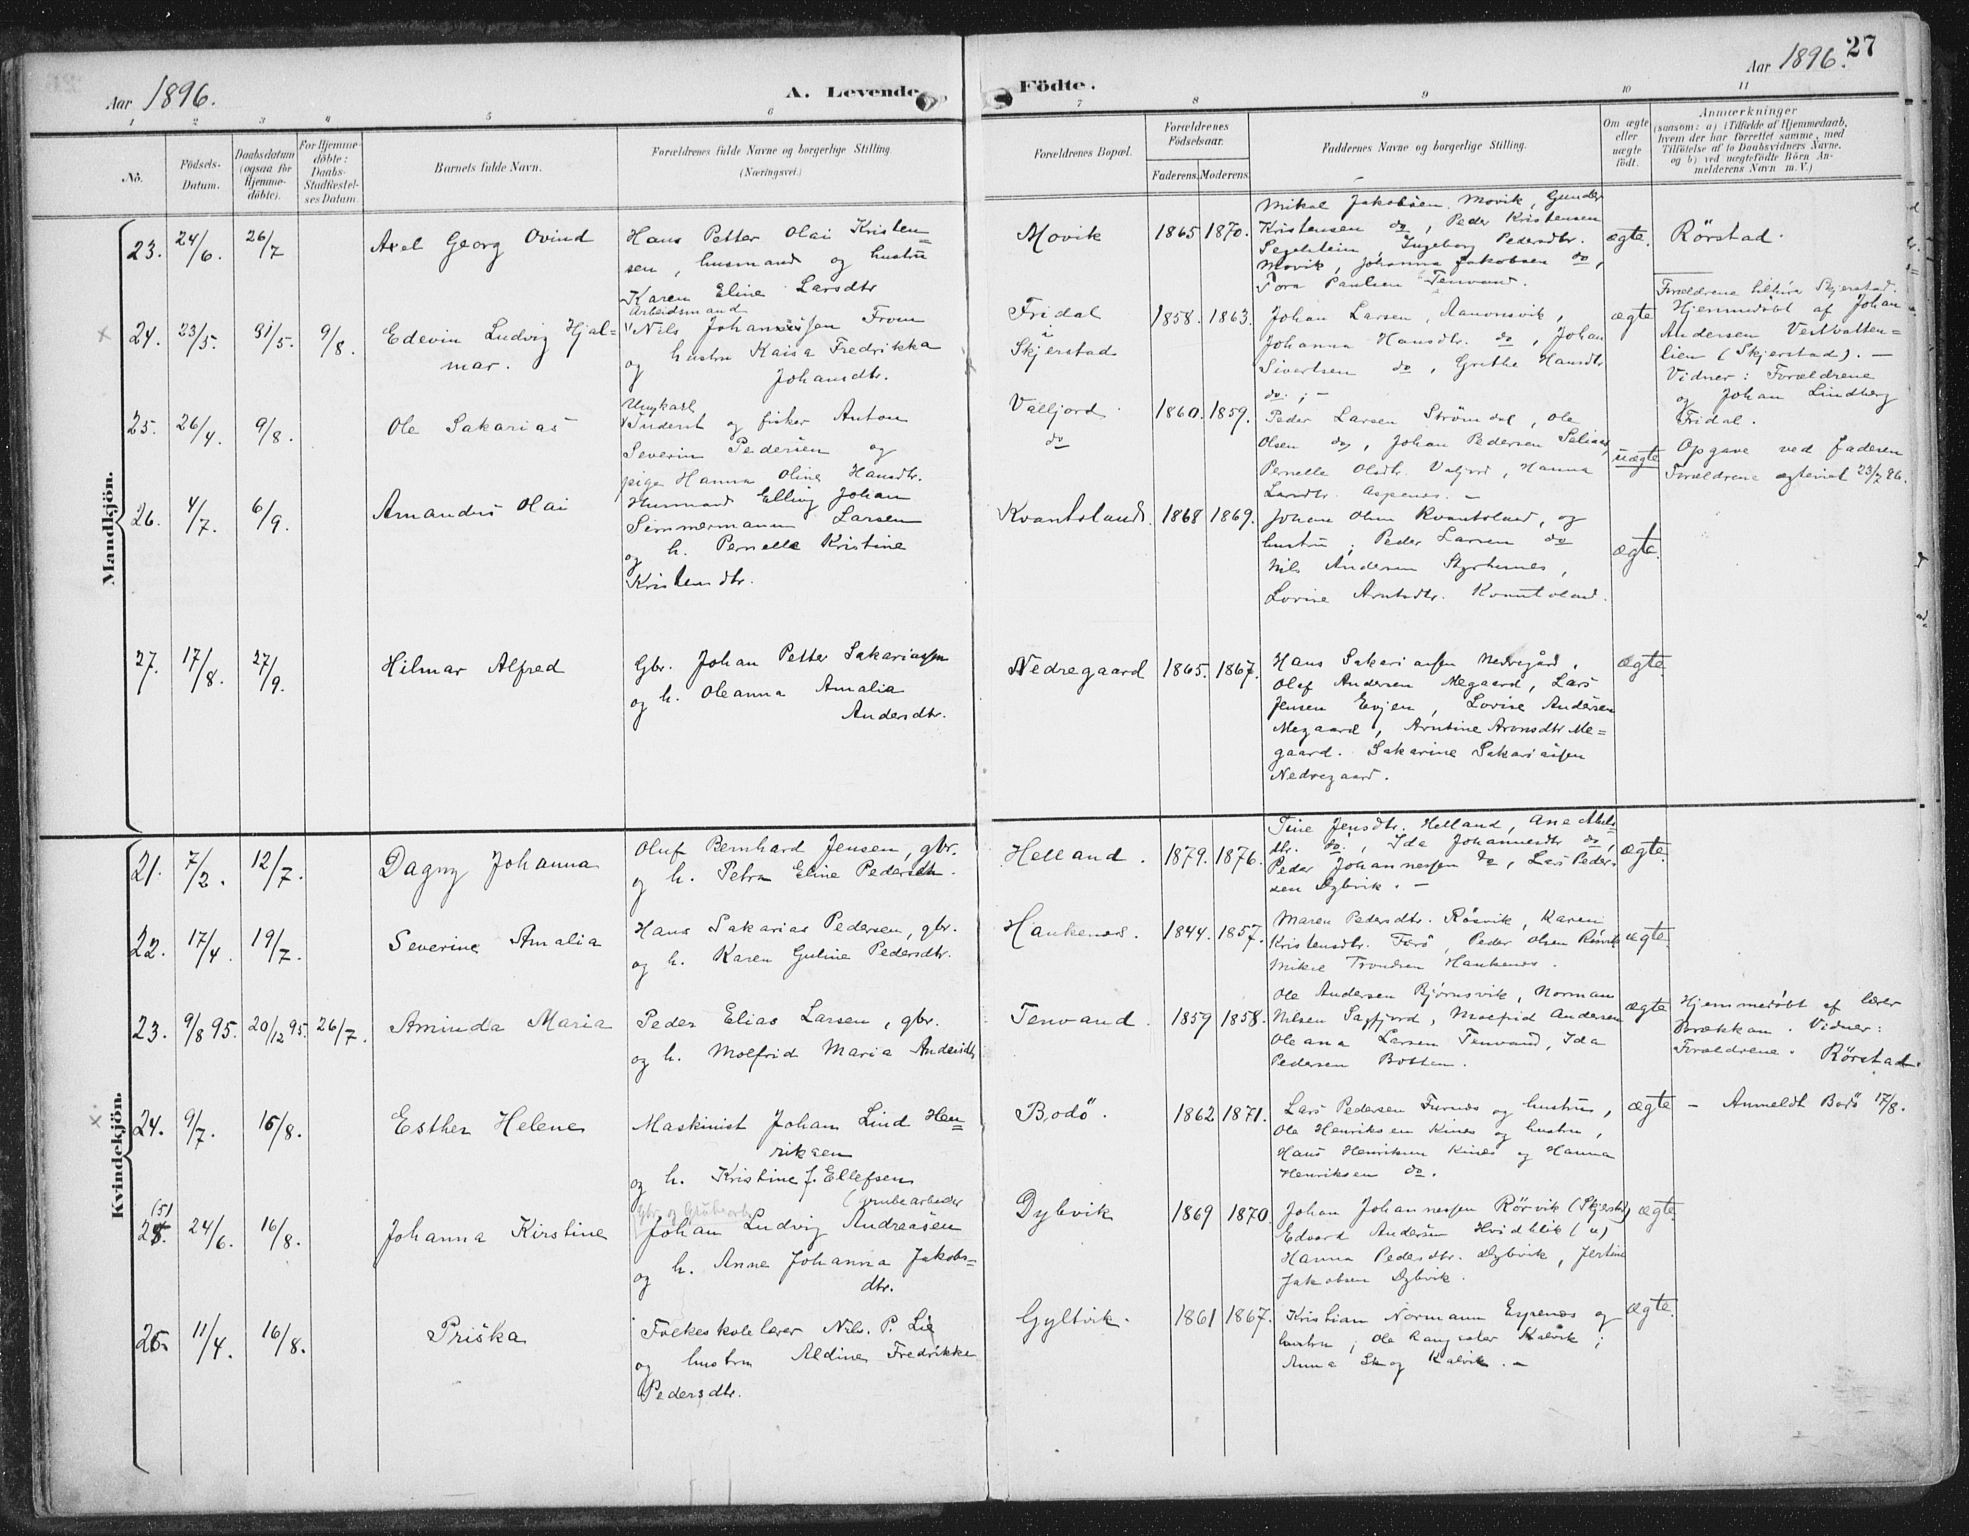 Aar 1896.
A. Levende
Födte.
Aar 1896.
27
1 2 3 4 5 6 7 8 9 10 11
No.
Födsels-
Datum.
Daabsdatum
(ogsaa for
Hjemme-
döbte).
For Hjemme-
döbte:
Daabs-
Stadfæstel-
ses Datum.
Barnets fulde Navn.
Forældrenes fulde Navne og borgerlige Stilling.
(Næringsvei.)
Forældrenes Bopæl.
Forældrenes
Födselsaar.
Faderens. Moderens.
Faddernes Navne og borgerlige Stilling.
Om ægte
eller
uægte
födt.
Anmærkninger
(saasom: a) i Tilfælde af Hjemmedaab,
hvem der har forrettet samme, med
Tilföielse af to Daabsvidners Navne,
og b) ved uægtefödte Börn An-
melderens Navn m. V.)
Mandkjön.
23. 24/6. 26/7 Axel Georg Ovind
Hans Petter Olai Kristen=
sen, husmand og hustru
Karen Eline Larsdtr
Movik 1865 1870.
Mikal Jakobsen Movik, Gunder
Kristensen do, Peder Kristensen
Segelstein, Ingeborg Pedersdtr.
Movik, Johanna Jakobsen do,
Tora Paulsen Tenvand.
ægte. Rörstad.
24. 23/5. 31/5. 9/8. Edevin Ludvig Hjal-
mar.
Arbeidsmand
Nils Johansen From
og hustru Kaisa Fredrikka
Johansdtr.
Fridal
i
Skjerstad
1858. 1863.
Johan Larsen, Aanonsvik,
Johanna Hansdtr. do, Johan
Sivertsen do, Grethe Hansdtr
do. ; -
ægte
Forældrene tilhöra Skjerstad.
Hjemmedöbt af Johan
Andersen Vestvatten=
lien (Skjerstad). -
Vidner: Forældrene
og Johan Lindberg
Fridal.
25. 26/4. 9/8. Ole Sakarias
Ungkarl
Inderst og fisker Anton
Severin Pedersen og
pige Hanna Oline Hansdtr.
Valljord.
do
1860. 1859.
Peder Larsen Strömdal, Ole
Olsen do, Johan Pedersen
Pernella Olsdtr. Valjord, Hanna
Larsdtr. Aspenes. -
uægte
Opgave ved faderen
Forældrene ægteviet 23/7 96.
26. 4/7. 6/9. Amandus Olai
Husmand Elling Johan
Simmermann Larsen
og h. Pernelle Kristine
Kristensdtr.
Kvantoland. 1868 1869.
Johan Olsen Kvantoland, og
hustru, Peder Larsen do
Nils Andersen Styrkesnes,
Lovise Arntsdtr. Kvantoland.
ægte.
27. 17/8. 27/9. Hilmar Alfred
Gbr. Johan Petter Sakariassen
og h. Oleanna Amalia
Andersdtr.
Nedregaard 1865. 1867.
Hans Sakariassen Nedregård,
Olaf Andersen Megaard, Lars
Jensen Evjen, Lovise Andersen
Megaard, Arntine Aronsdtr Me=
gaard. Sakarine Sakariassen
Nedregaard.
ægte.
Kvindekjön.
21. 7/2. 12/7. Dagny Johanna
Oluf Bernhard Jensen, gbr.
og h. Petra Eline Pedersdtr.
Helland. 1879. 1876.
Tine Jensdtr. Helland, Ane Abels-
dtr. do, Ida Johannesdtr do,
Peder Johannessen do, Lars Peder-
sen Dybvik. -
ægte.
22. 17/4. 19/7. Severine Amalia
Hans Sakarias Pedersen, gbr.
og h. Karen Guline Pedersdtr.
Haukenes. 1844. 1857.
Maren Pedersdtr. Rösvik, Karen
Kristensdtr. Færö, Peder Olsen Rösvik
Mikal Trondsen Haukenes.
ægte.
23. 9/8 95. 20/12 95. 26/7. Aminda Maria
Peder Elias Larsen, gbr.
og h. Molfrid Maria Andersdtr
Tenvand. 1859 1858.
Ole Andersen Björnsvik, Norman
Nilsen Sagfjord, Molfrid Andersen
Oleana Larsen Tenvand, Ida
Pedersen Botten.
ægte
Hjemmedöbt af lærer
Brækkan. Vidner:
Forældrene. Rörstad.
24. 9/7. 16/8. Esther Helene
Maskinist Johan Lind Hen=
riksen
og h. Kristine f. Ellefsen
Bodö. 1862 1871.
Lars Pedersen Furnes og hustru,
Ole Henriksen Kines og hustru,
Hans Henriksen Kines og Hanna
Henriksen do.
ægte - Anmeldt Bodö 17/8.
(5)
25. 24/6. 16/8. Johanna Kirstine
Gbr. og Grubearb.
(Grubearbeder
Johan Ludvig Andreasen
og h. Anne Johanna Jakobs=
dtr.
Dybvik 1869 1870.
Johan Johannessen Rörvik (Skjerstad)
Edvard Andersen Hvidblik (u)
Hanna Pedersdtr. Dybvik, Jertine
Jakobsen Dybvik.
ægte.
26. 11/4. 16/8. Priska
Folkeskolelærer Nils. P. Lie
og hustru Aldine Fredrikke
Pedersdtr.
Gyltvik. 1861 1867.
Kristian Normann Espenes og
hustru, Ole Rangsæter Kalvik;
Anna Skog Kalvik. -
ægte.